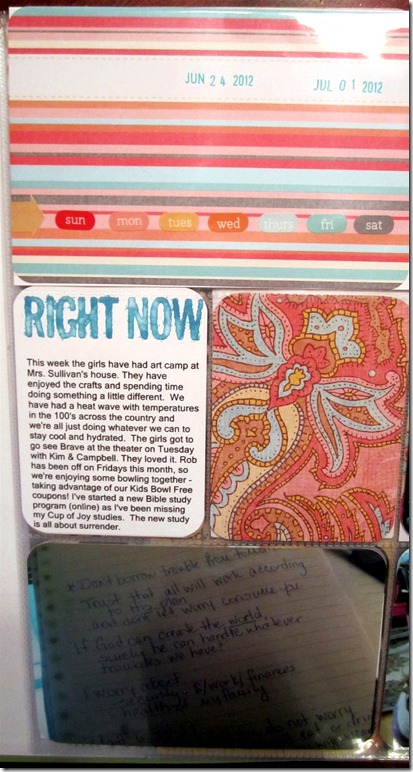 JUN 24 2012 JUL 01 2012
sun mon tues wed thurs fri sat
RIGHT NOW
This week the girls have had art camp at
Mrs. Sullivan's house. They have
enjoyed the crafts and spending time
doing something a little different. We
have had a heat wave with temperatures
in the 100's across the country and
we're all just doing whatever we can to
stay cool and hydrated. The girls got to
go see Brave at the theater on Tuesday
with Kim & Campbell. They loved it. Rob
has been off on Fridays this month, so
we're enjoying some bowling together -
taking advantage of our Kids Bowl Free
coupons! I've started a new Bible study
program (online) as I've been missing
my Cup of Joy studies. The new study
is all about surrender.
* Don't borrow trouble from
Trust that all will work according
to His plan
and don't let worry consume
If God can create the world,
surely he can handle whatever
troubles we have!
I worry about
security - work/finances
health of my family
do not worry
eat or